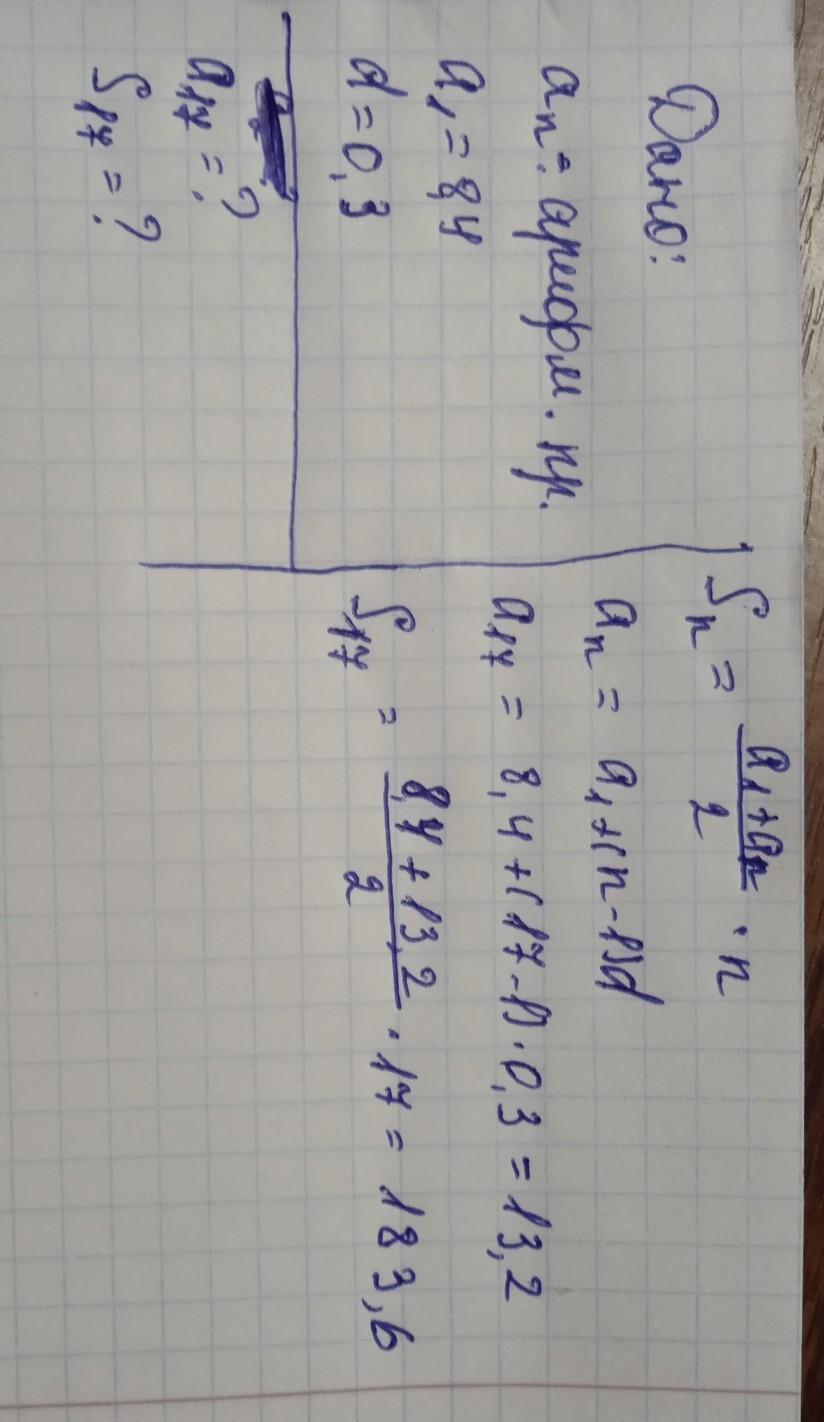 Дано:
aₙ - арифм. пр.
a₁ = 8,4
d = 0,3
a₁₇ = ?
S₁₇ = ?
Sₙ = (a₁ + aₙ)/2 · n
aₙ = a₁ + (n - 1)d
a₁₇ = 8,4 + (17 - 1) · 0,3 = 13,2
S₁₇ = (8,4 + 13,2)/2 · 17 = 183,6